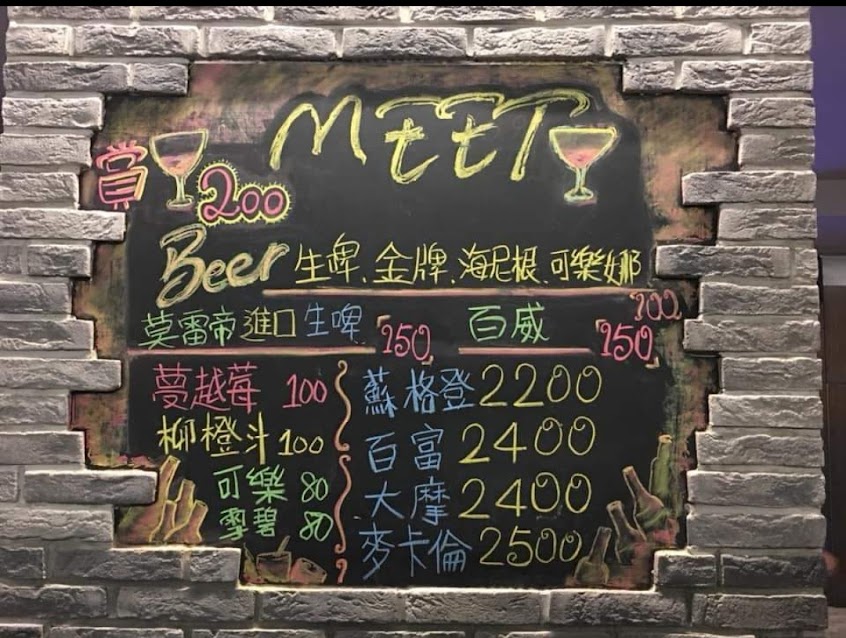 MEET
賞 200
Beer 生啤、金牌、海尼根、可樂娜 100
莫雷帝進口生啤 150 百威 150
夢越莓 100
柳橙汁 100
可樂 80
雪碧 80
蘇格登 2200
百富 2400
大摩 2400
麥卡倫 2500